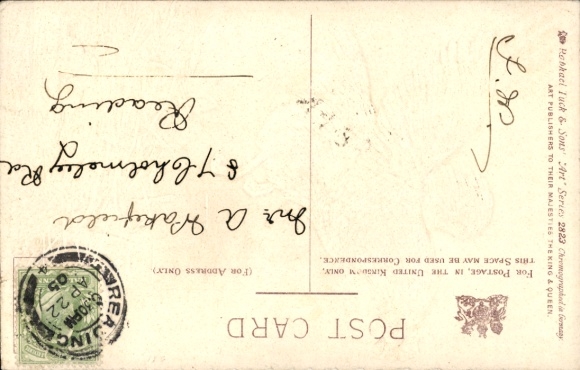 POST CARD
FOR POSTAGE, IN THE UNITED KINGDOM ONLY,
THIS SPACE MAY BE USED FOR CORRESPONDENCE.
(FOR ADDRESS ONLY)
READING
AP 22
05
Mr A Wakefield
Cholmeley Rd
Reading
Raphael Tuck & Sons' "Art" Series 2823 Chromographed in Germany
ART PUBLISHERS TO THEIR MAJESTIES THE KING & QUEEN.